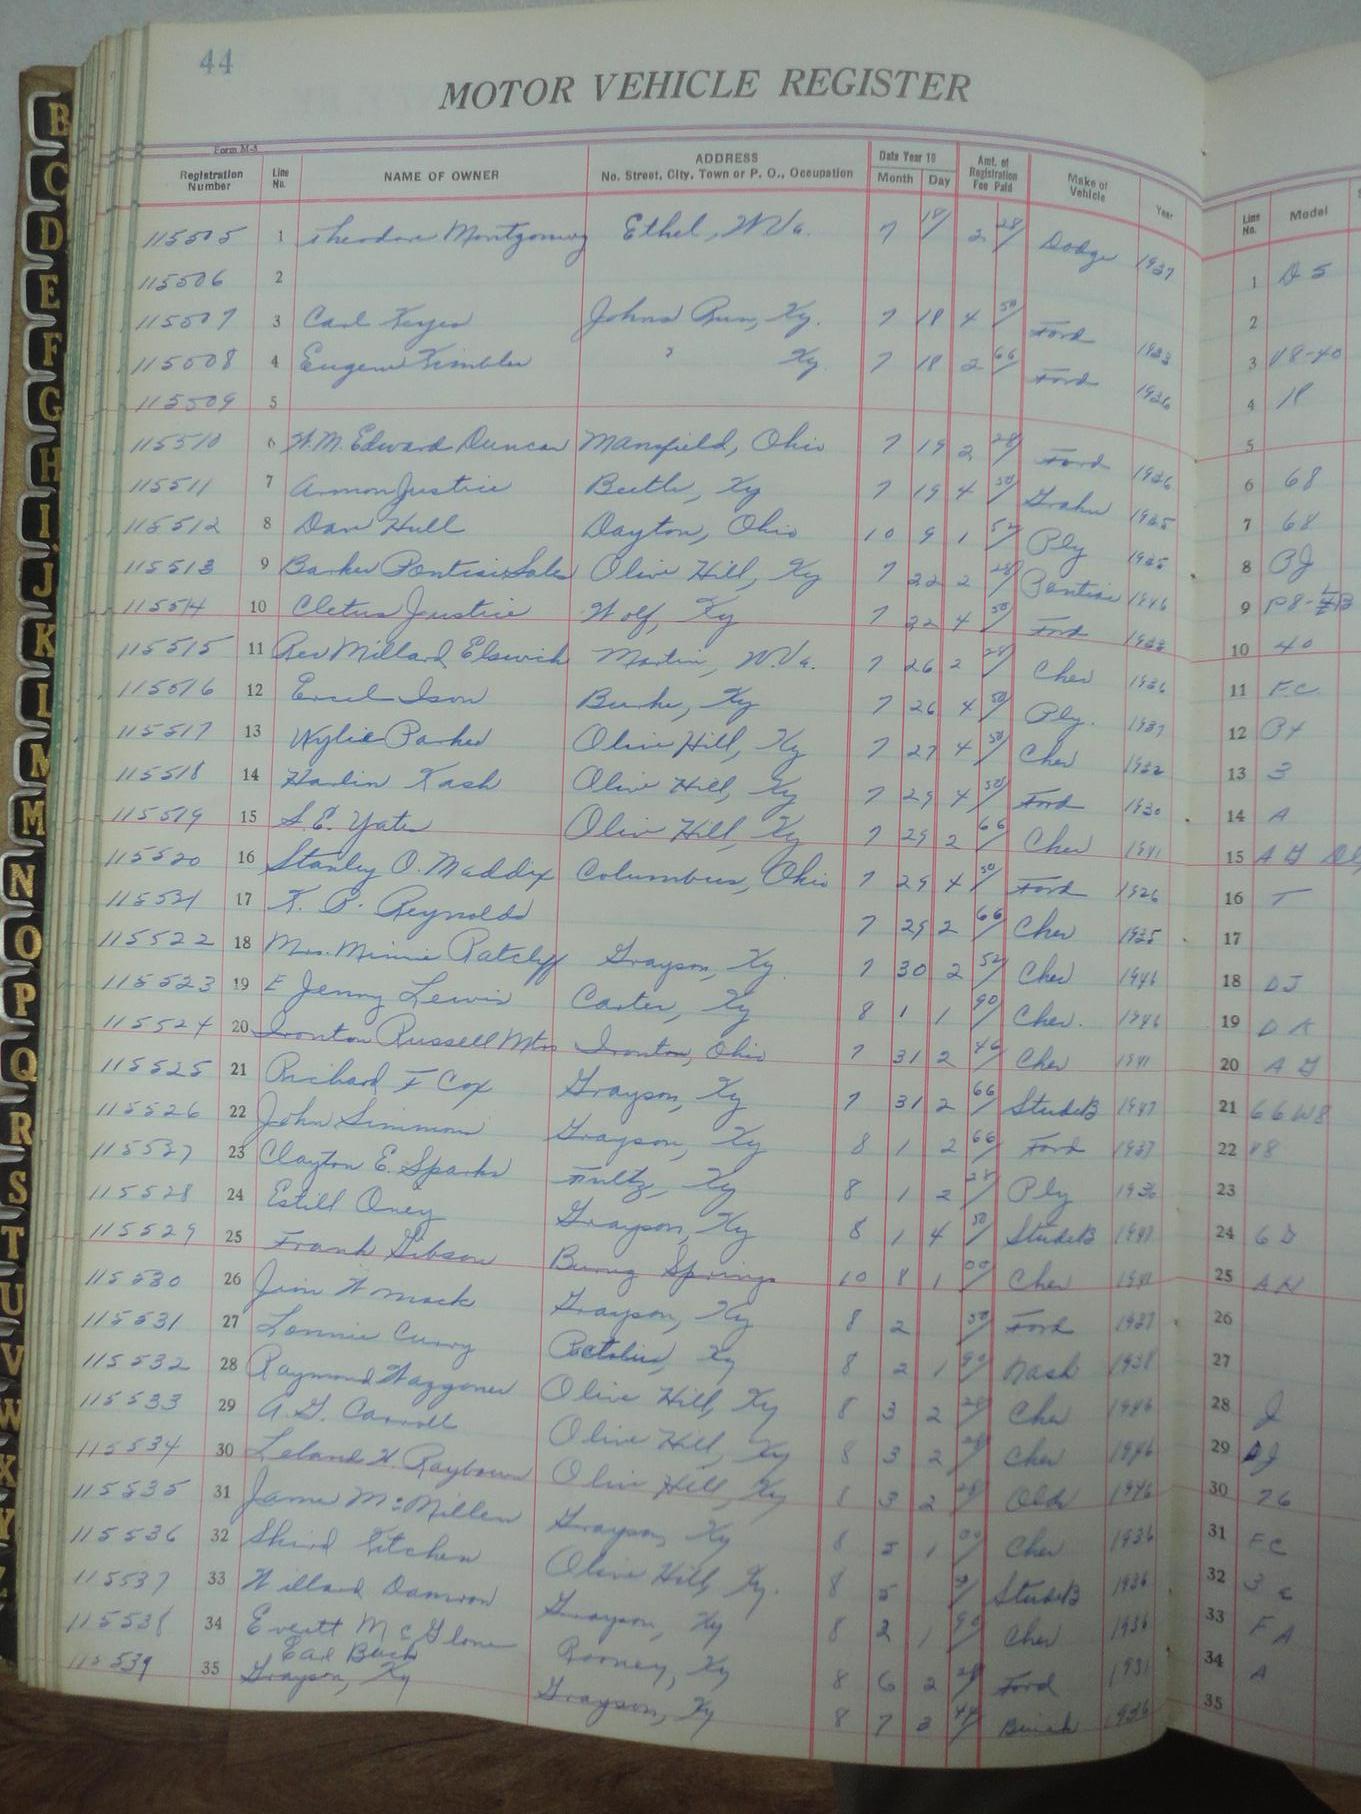 44
MOTOR VEHICLE REGISTER
Form M-5
Registration Number Line No. NAME OF OWNER ADDRESS No. Street, City, Town or P. O., Occupation Date Year 19 Month Day Amt. of Registration Fee Paid Make of Vehicle Year Line No. Model
115505 1 Theodore Montgomery Ethel, W.Va. 7 18 2 28 Dodge 1937 1 D 5
115506 2 2
115507 3 Carl Keyes Johns Run, Ky. 7 18 4 50 Ford 1933 3 V8-40
115508 4 Eugene Kimbler ? Ky. 7 18 2 66 Ford 1936 4 18
115509 5 5
115510 6 W.M. Edward Duncan Mansfield, Ohio 7 19 2 28 Ford 1936 6 68
115511 7 Armon Justice Beetle, Ky 7 19 4 50 Grahm 1935 7 68
115512 8 Dan Hull Dayton, Ohio 10 9 1 52 Ply 1935 8 PJ
115513 9 Barker Pontiac Sales Olive Hill, Ky 7 22 2 28 Pontiac 1946 9
115514 10 Cletus Justice Wolf, Ky 7 22 4 50 Ford 1933 10 40
115515 11 Rev Millard Elswick Martin, W.Va. 7 26 2 28 Chev 1936 11 FC
115516 12 Ercel Ison Burke, Ky 7 26 4 50 Ply. 1937 12 P4
115517 13 Wylie Parker Olive Hill, Ky 7 27 4 50 Chev 1932 13 3
115518 14 Harlin Kash Olive Hill, Ky 7 29 4 50 Ford 1930 14 A
115519 15 S.E. Yates Olive Hill, Ky 7 29 2 66 Chev 1941 15 A G
115520 16 Stanley O. Maddix Columbus, Ohio 7 29 4 50 Ford 1926 16 T
115521 17 K. P. Reynolds 7 29 2 66 Chev 1935 17
115522 18 Mrs. Minnie Ratcliff Grayson, Ky. 7 30 2 52 Chev 1946 18 DJ
115523 19 E Jenny Lewis Carter, Ky 8 1 1 90 Chev. 1946 19 D K
115524 20 Ironton Russell Mtrs Ironton, Ohio 7 31 2 46 Chev 1941 20 A G
115525 21 Richard F Cox Grayson, Ky 7 31 2 66 StudeB 1947 21 66W8
115526 22 John Simmons Grayson, Ky 8 1 2 66 Ford 1937 22 V8
115527 23 Clayton E. Sparks Fultz, Ky 8 1 2 28 Ply 1936 23
115528 24 Estill Oney Grayson, Ky 8 1 4 50 StudeB 1947 24 6 G
115529 25 Frank Gibson Burng Springs 10 8 1 00 Chev 1941 25 AH
115530 26 Jim Womack Grayson, Ky 8 2 50 Ford 1937 26
115531 27 Lonnie Curry Pactolus, Ky 8 2 1 90 Nash 1938 27
115532 28 Raymond Waggoner Olive Hill, Ky 8 3 2 28 Chev 1946 28 J
115533 29 A.G. Carroll Olive Hill, Ky 8 3 2 28 Chev 1946 29 DJ
115534 30 Leland H. Raybourn Olive Hill, Ky 8 3 2 28 Olds 1946 30 76
115535 31 James McMillen Grayson, Ky 8 5 1 00 Chev 1936 31 FC
115536 32 Shird Kitchen Olive Hill, Ky. 8 5 StudeB 1936 32 3 c
115537 33 Willard Damron Grayson, Ky 8 2 1 90 Chev 1936 33 F A
115538 34 Everett McGlone Rooney, Ky 8 6 2 28 Ford 1931 34 A
115539 35 Earl Buck Grayson, Ky Grayson, Ky 8 7 3 44 Buick 1936 35
B
C
D
E
F
G
H
I
J
K
L
M
M
N
O
P
Q
R
S
T
U
V
W
X
Y
Z